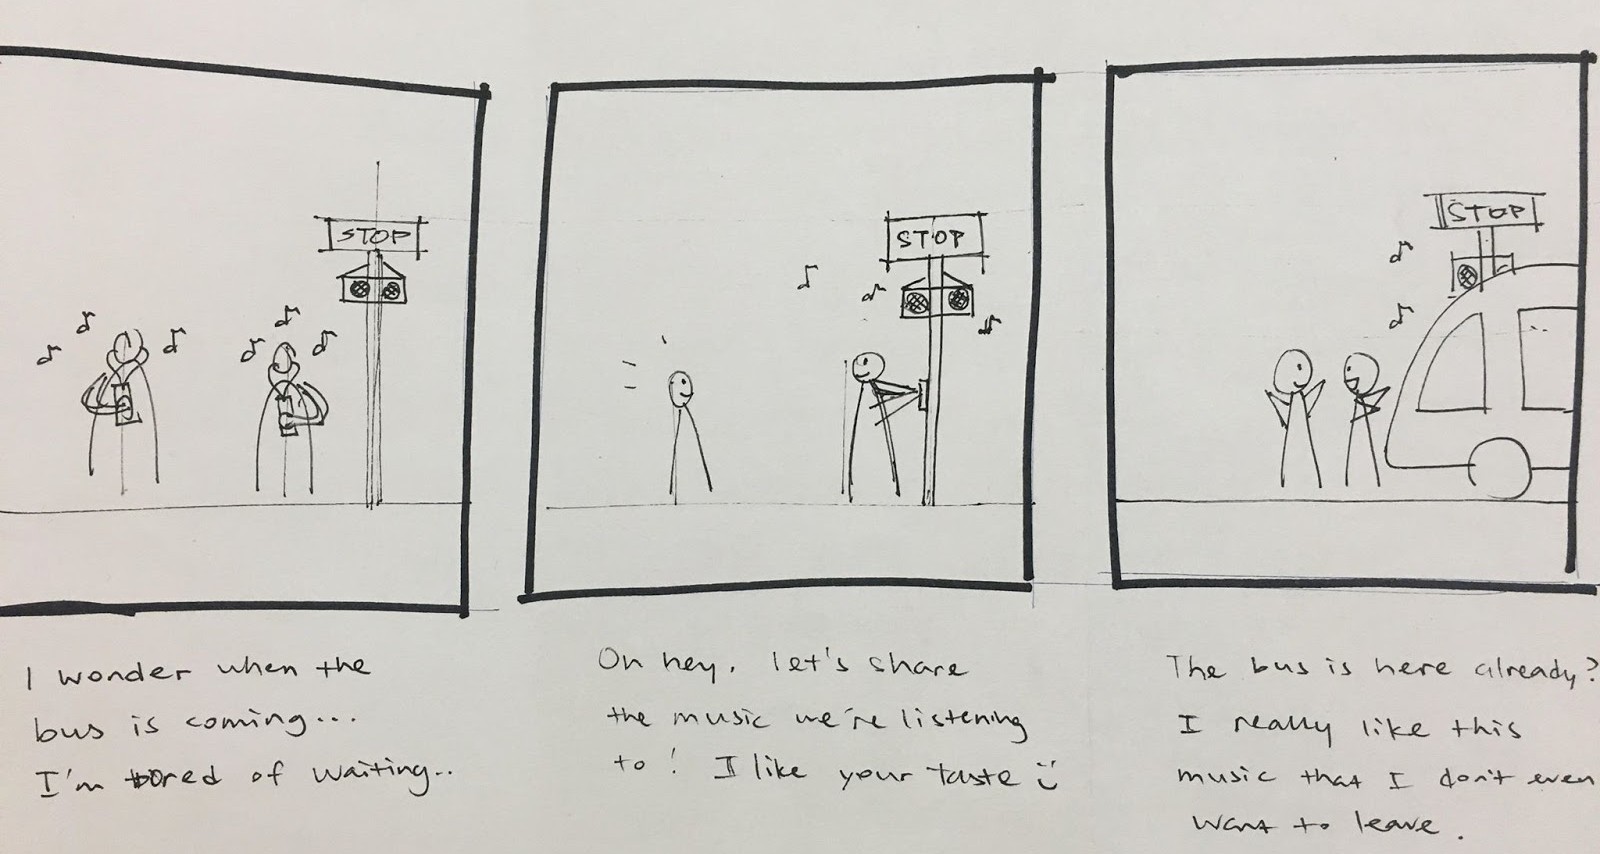 STOP
STOP
STOP
I wonder when the
bus is coming...
I'm bored of waiting..
Oh hey, let's share
the music we're listening
to! I like your taste
The bus is here already?
I really like this
music that I don't even
want to leave.